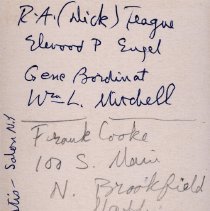 R.A. (Dick) Teague
Elewood P Engel
Gene Bordinat
Wm L. Mitchell
Frank Cooke
100 S. Main
N. Brookfield